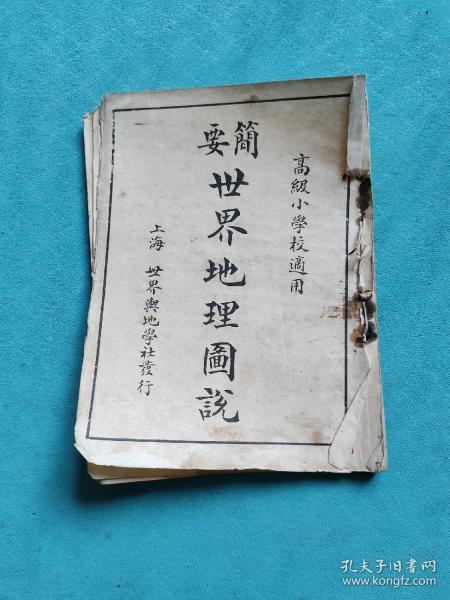 高級小學校適用
簡要
世界地理圖說
上海 世界輿地學社發行
孔夫子旧书网
www.kongfz.com